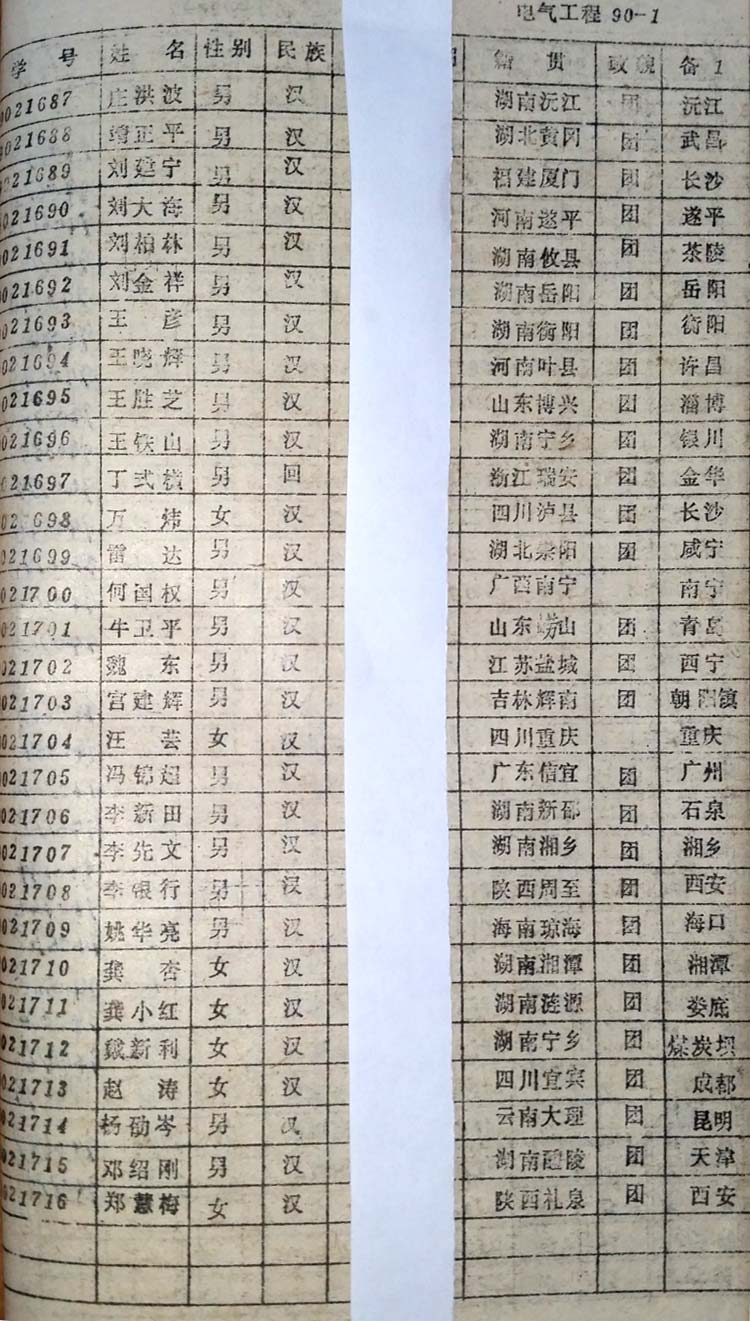 电气工程 90-1
学号 姓名 性别 民族 籍贯 政貌 备1
9021687 庄洪波 男 汉 湖南沅江 团 沅江
9021688 靖正平 男 汉 湖北黄冈 团 武昌
9021689 刘建宁 男 汉 福建厦门 团 长沙
9021690 刘大海 男 汉 河南遂平 团 遂平
021691 刘柏林 男 汉 湖南攸县 团 茶陵
021692 刘金祥 男 汉 湖南岳阳 团 岳阳
021693 王彦 男 汉 湖南衡阳 团 衡阳
021694 王晓辉 男 汉 河南叶县 团 许昌
021695 王胜芝 男 汉 山东博兴 团 淄博
021696 王铁山 男 汉 湖南宁乡 团 银川
021697 丁式横 男 回 浙江瑞安 团 金华
02 698 万炜 女 汉 四川泸县 团 长沙
021699 雷达 男 汉 湖北崇阳 团 咸宁
021700 何国权 男 汉 广西南宁 南宁
021701 牛卫平 男 汉 山东崂山 团 青岛
021702 魏东 男 汉 江苏盐城 团 西宁
021703 宫建辉 男 汉 吉林辉南 团 朝阳镇
021704 汪芸 女 汉 四川重庆 重庆
021705 冯锦超 男 汉 广东信宜 团 广州
021706 李新田 男 汉 湖南新邵 团 石泉
021707 李先文 男 汉 湖南湘乡 团 湘乡
021708 李银行 男 汉 陕西周至 团 西安
021709 姚华亮 男 汉 海南琼海 团 海口
021710 龚杏 女 汉 湖南湘潭 团 湘潭
021711 龚小红 女 汉 湖南涟源 团 娄底
021712 戴新利 女 汉 湖南宁乡 团 煤炭坝
021713 赵涛 女 汉 四川宜宾 团 成都
021714 杨劭岑 男 汉 云南大理 团 昆明
021715 邓绍刚 男 汉 湖南醴陵 团 天津
021716 郑慧梅 女 汉 陕西礼泉 团 西安